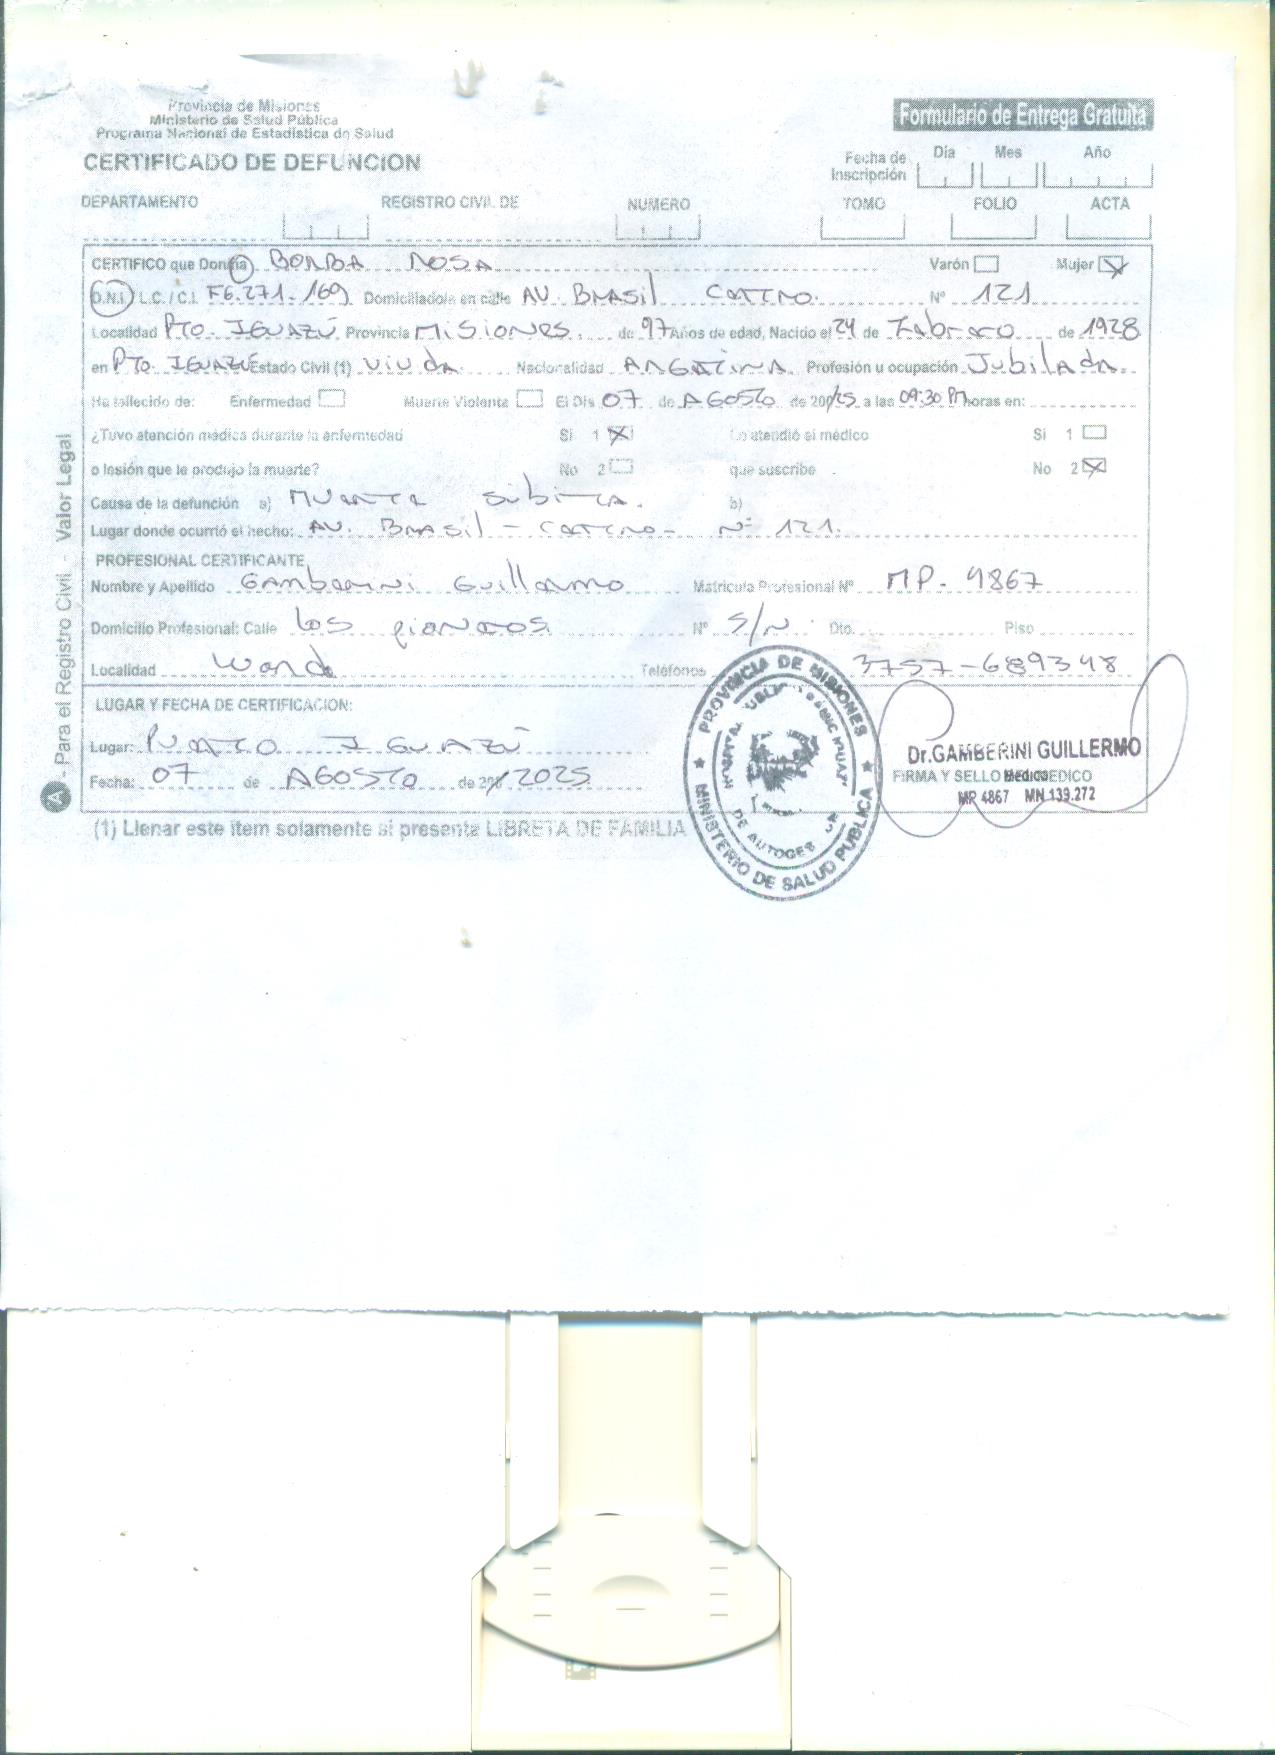 Provincia de Misiones
Ministerio de Salud Pública
Programa Nacional de Estadística de Salud
CERTIFICADO DE DEFUNCION
Formulario de Entrega Gratuita
Fecha de Inscripción Día Mes Año
DEPARTAMENTO REGISTRO CIVIL DE NUMERO TOMO FOLIO ACTA
CERTIFICO que Don/ña BORBA ROSA Varón Mujer X
D.N.I. L.C. / C.I. F6.271.169 Domiciliado/a en calle AV. BRASIL Nº 121
Localidad PTO. IGUAZÚ Provincia MISIONES. de 97 Años de edad, Nacido el 24 de Febrero de 1928
en PTO. IGUAZÚ Estado Civil (1) Viuda. Nacionalidad ARGENTINA Profesión u ocupación Jubilada.
Ha fallecido de: Enfermedad Muerte Violenta El Día 07 de AGOSTO de 200/25 a las 09:30 PM horas en:
¿Tuvo atención médica durante la enfermedad Si 1 X Lo atendió el médico Si 1
o lesión que le produjo la muerte? No 2 que suscribe No 2 X
Causa de la defunción a) MUERTE SúbiTA. b)
Lugar donde ocurrió el hecho: AV. BRASIL - Nº 121.
PROFESIONAL CERTIFICANTE
Nombre y Apellido Gamberini Guillermo Matrícula Profesional Nº MP. 4867
Domicilio Profesional: Calle Los pioneros. Nº S/N Dto. Piso
Localidad Wanda Teléfonos 3757-689348
LUGAR Y FECHA DE CERTIFICACION:
Lugar: Puerto IGUAZÚ
Fecha: 07 de AGOSTO de 200/2025
PROVINCIA DE MISIONES
MINISTERIO DE SALUD PUBLICA
Dr. GAMBERINI GUILLERMO
FIRMA Y SELLO MEDICO
Médico
MP. 4867 MN 139.272
(1) Llenar este ítem solamente si presenta LIBRETA DE FAMILIA
A - Para el Registro Civil - Valor Legal